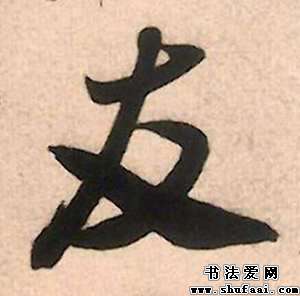 友
书法爱网
www.shufaai.com